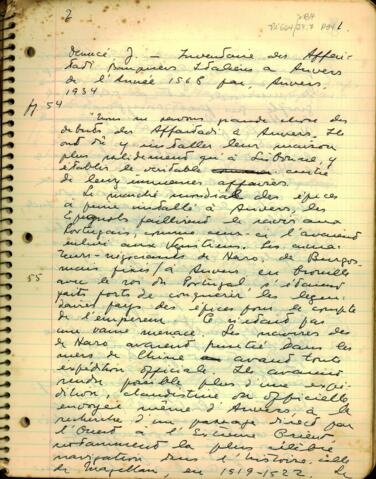 2
Denucé J. – Inventaire des Affai-
tadi banquiers Italiens à Anvers
de l'Année 1568 par, Anvers,
1934
pg 54
"Nous ne savons grande chose des
débuts des Affaitadi à Anvers. Ils
ont dû y installer leur maison
plus solidement qu'à Lisbonne, y
établir le véritable centre
de leurs immenses affaires.
Le marché mondial des épices
à peine installé à Anvers, les
Espagnols faillirent le ravir aux
Portugais, comme ceux-ci l'avaient
enlevé aux Vénitiens. Les arma-
teurs-négociants de Haro, de Burgos
mais fixés à Anvers, en brouille
55
avec le roi du Portugal, s'étaient
faits forts de conquérir les légen-
daires pays des épices pour le compte
de l'empereur. Ce n'était pas
une vaine menace. Les navires des
de Haro avaient pénétré dans les
mers de Chine avant toute
expédition officielle. Ils avaient
rendu possible plus d'une expé-
dition, clandestine ou officielle,
envoyée même d'Anvers, à la
recherche d'un passage direct par
l'Ouest à l'Extrême Orient,
notamment la plus célèbre
navigation dans l'histoire, celle
de Magellan, en 1519-1522. Le